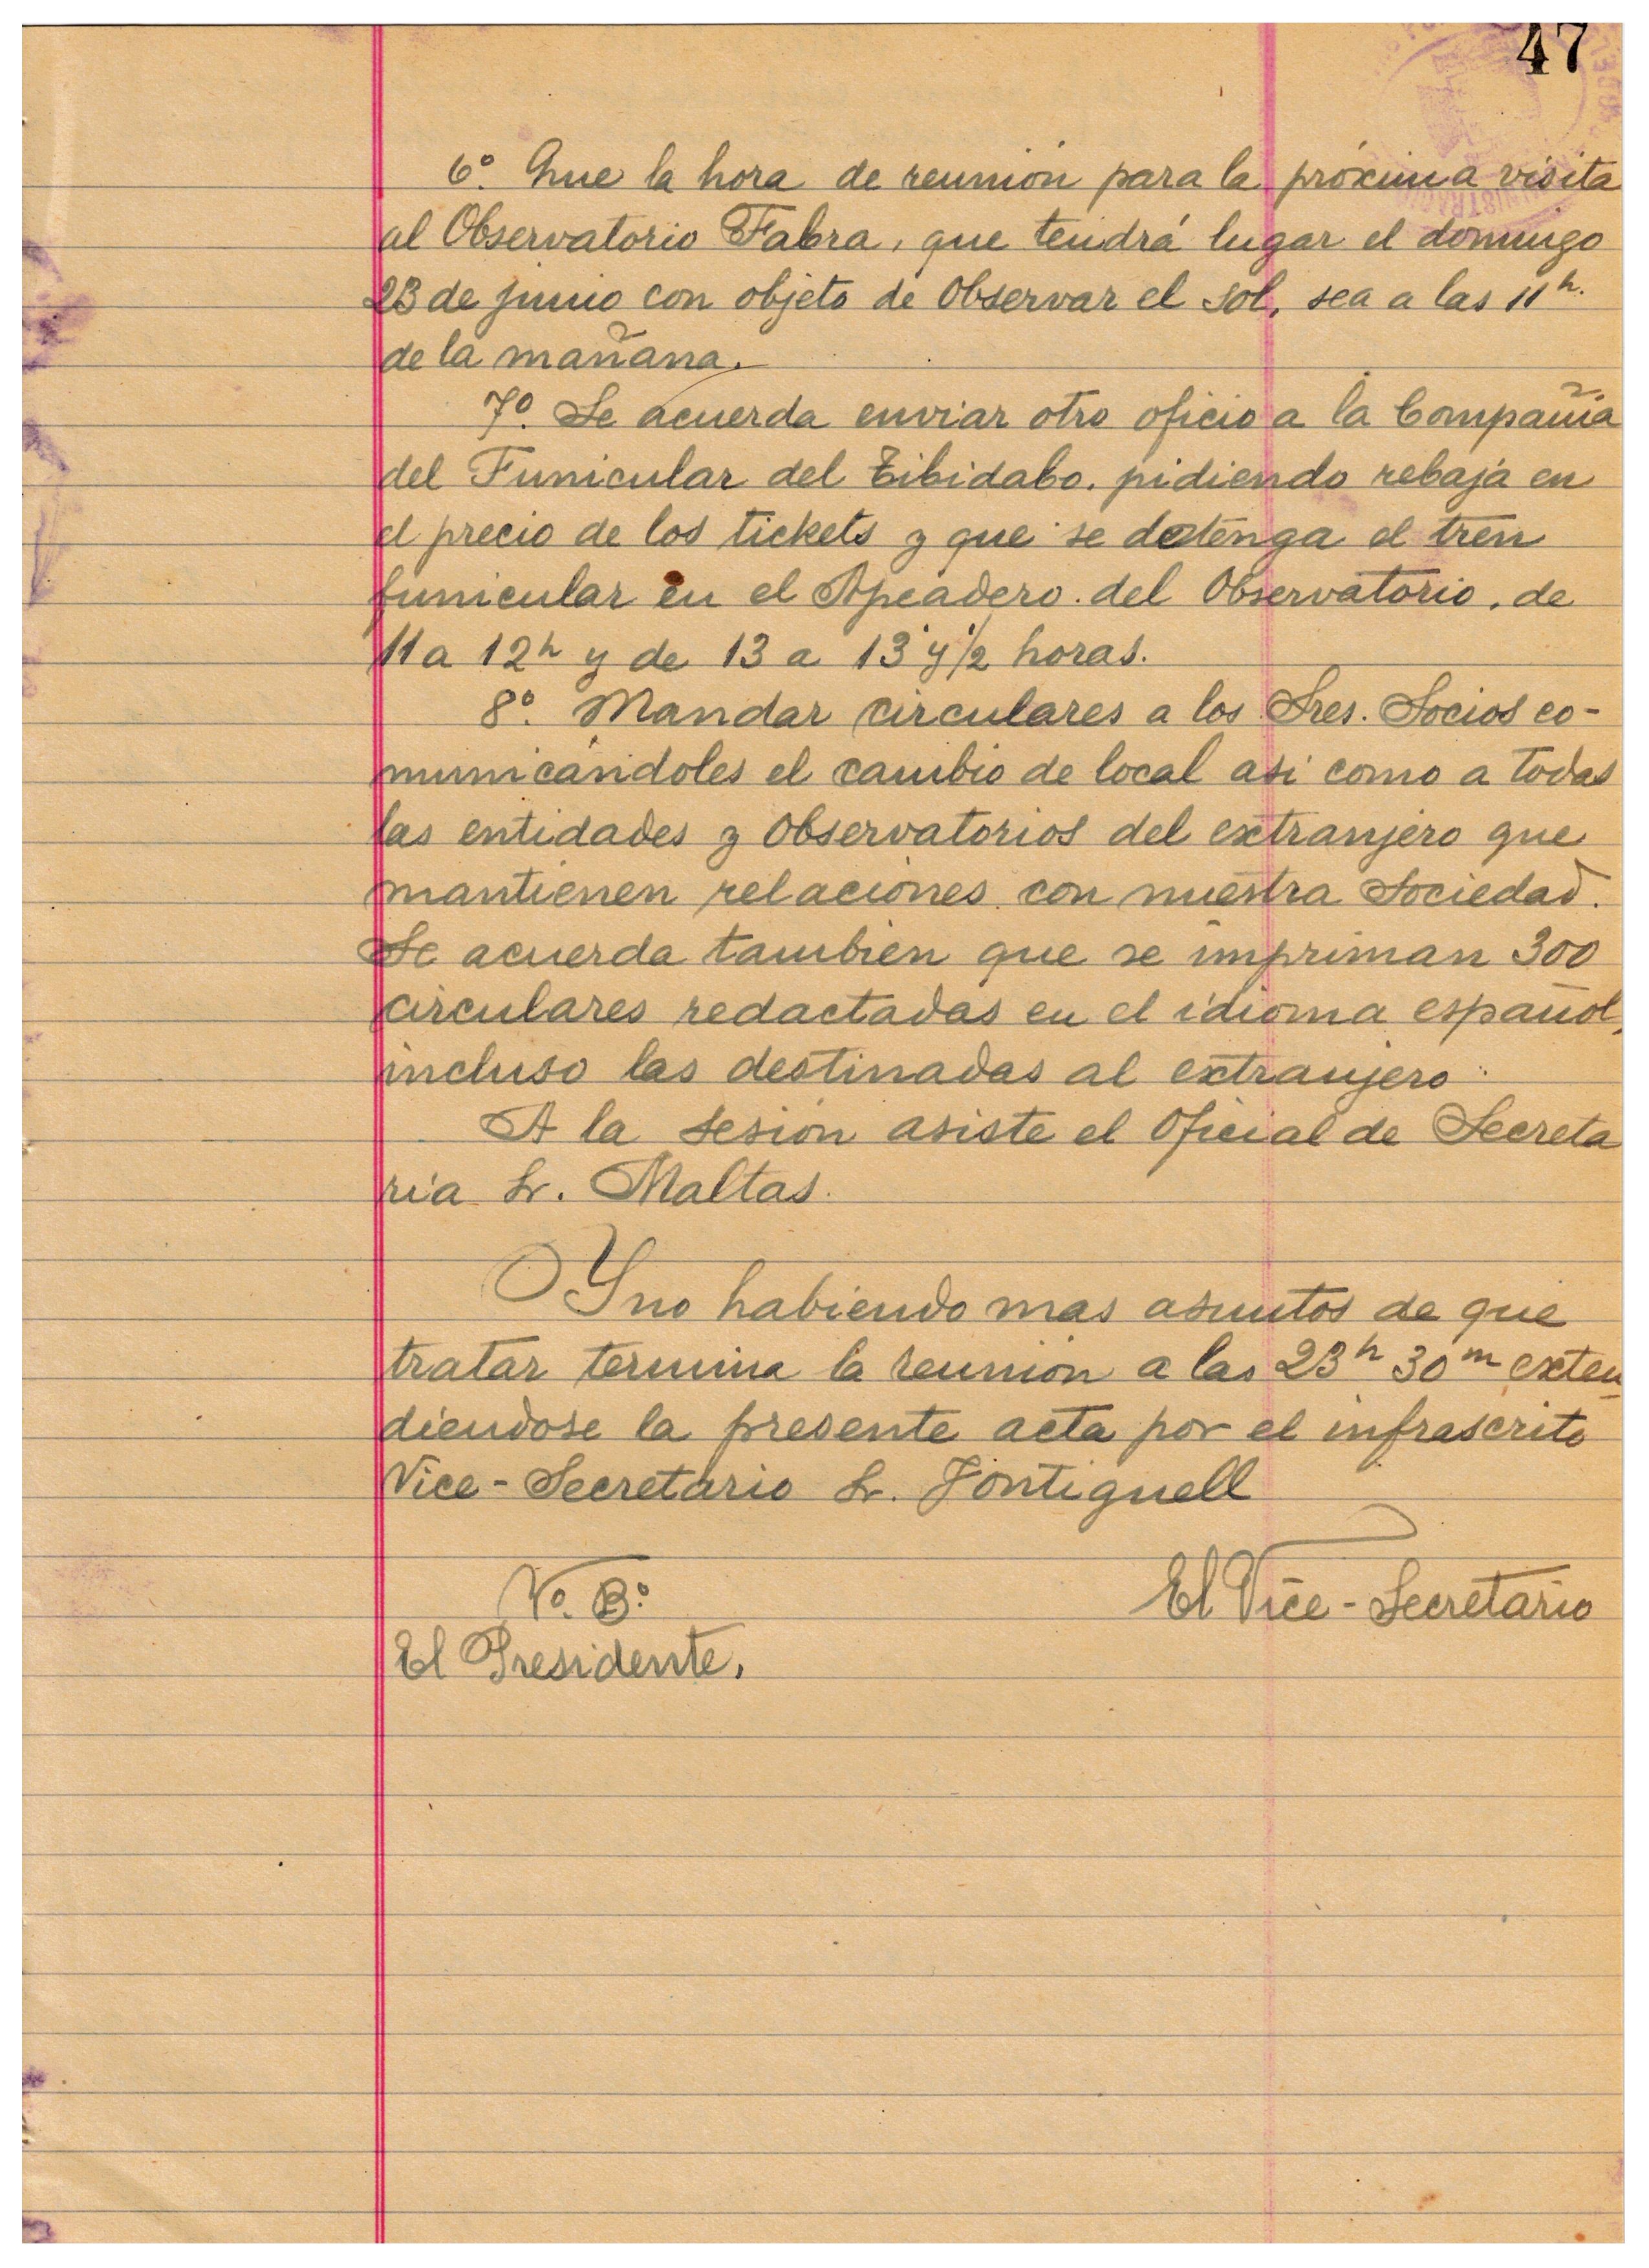 47
6º. Que la hora de reunión para la próxima visita
al Observatorio Fabra, que tendrá lugar el domingo
23 de junio con objeto de Observar el sol, sea a las 11 h.
de la mañana.
7º. Se acuerda enviar otro oficio a la Compañia
del Funicular del Tibidabo. pidiendo rebaja en
el precio de los tickets y que se detenga el tren
funicular en el Apeadero del Observatorio, de
11 a 12 h y de 13 a 13 y 1/2 horas.
8º. Mandar circulares a los Sres. Socios co-
municándoles el cambio de local asi como a todas
las entidades y Observatorios del extranjero que
mantienen relaciones con nuestra Sociedad.
Se acuerda tambien que se impriman 300
circulares redactadas en el idioma español,
incluso las destinadas al extranjero
A la sesión asiste el Oficial de Secreta
ria Sr. Maltas.
Y no habiendo mas asuntos de que
tratar termina la reunión a las 23 h 30 m exten
diendose la presente acta por el infrascrito
Vice-Secretario Sr. Fontiguell
Vº. Bº.
El Vice-Secretario
El Presidente,